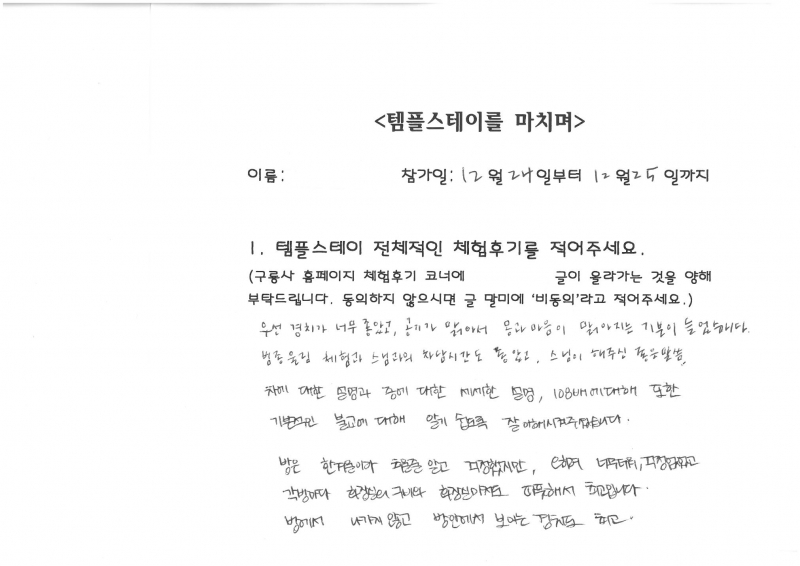 <템플스테이를 마치며>
이름: 참가일: 12월 24일부터 12월 25일까지
1. 템플스테이 전체적인 체험후기를 적어주세요.
(구룡사 홈페이지 체험후기 코너에 글이 올라가는 것을 양해
부탁드립니다. 동의하지 않으시면 글 말미에 '비동의'라고 적어주세요.)
우선 경치가 너무 좋았고, 공기가 맑아서 몸과 마음이 맑아지는 기분이 들었습니다.
범종울림 체험과 스님과의 차담시간도 좋았고, 스님이 해주신 좋은말씀,
차에 대한 설명과 종에 대한 세세한 설명, 108배에대해 또한
기본적인 불교에 대해 알기 쉽도록 잘 이해시켜주셨습니다.
방은 한겨울이라 추울줄 알고 걱정했지만, 너무
각방마다 화장실이 화장실마저도 따뜻해서 최고입니다.
방에서 나가지 않고 방안에서 보이는 경치도 최고.